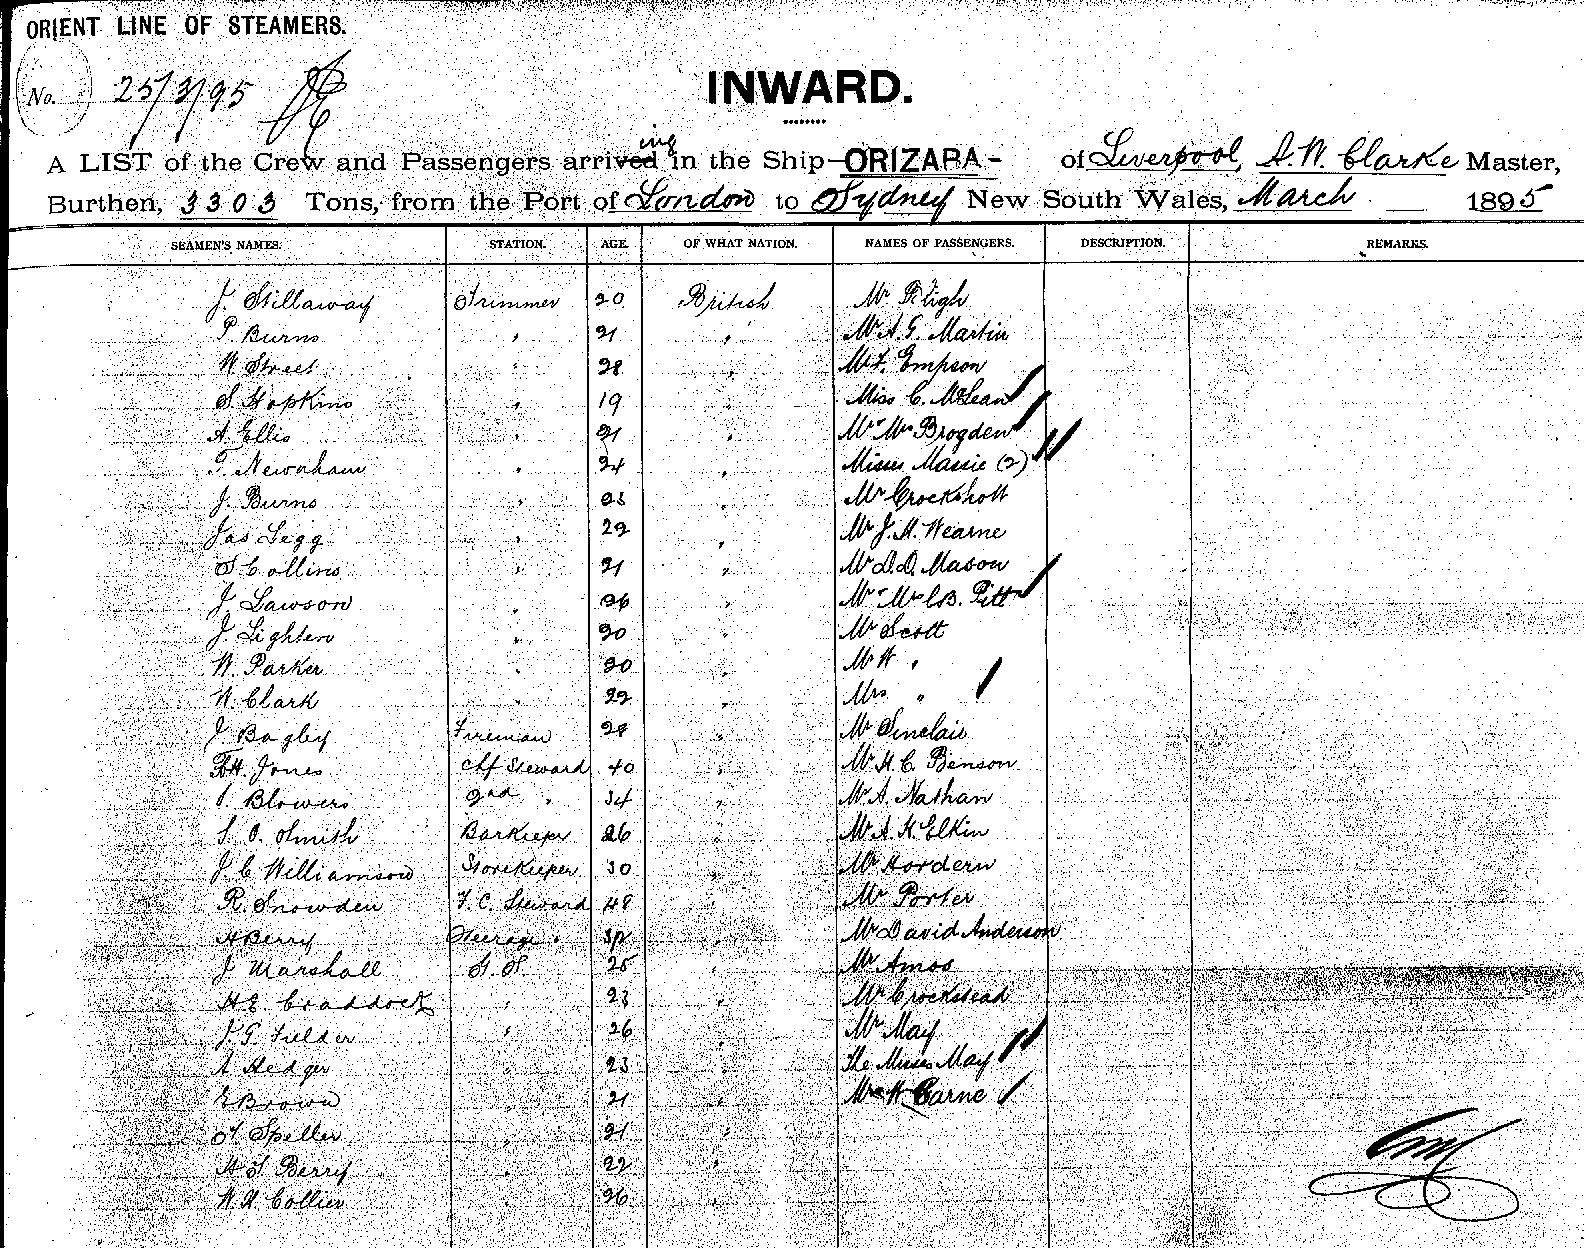 ORIENT LINE OF STEAMERS.
No. 25/3/95
INWARD.
ing
A LIST of the Crew and Passengers arrived in the Ship ORIZABA - of Liverpool, A. W. Clarke Master,
Burthen, 3303 Tons, from the Port of London to Sydney New South Wales, March 1895
SEAMEN'S NAMES. STATION. AGE. OF WHAT NATION. NAMES OF PASSENGERS. DESCRIPTION. REMARKS.
J. Stillaway Trimmer 20 British Mr Bligh
P. Burns " 21 " Mr A. G. Martin
W Street " 28 " Mr F. Empson
S. Hopkins " 19 " Miss C. McLean
A. Ellis " 21 " Mr Mrs Brogden
T. Newnham " 24 " Misses Massie (2)
J. Burns " 23 " Mr Crockshott
Jas Legg " 22 " Mr J. H. Wearne
S Collins " 21 " Mr D. D. Mason
J. Lawson " 26 " Mr Mrs C. B. Pitt
J. Lighten " 20 " Mr Scott
W. Parker " 20 " Mr W "
W. Clark " 22 " Mrs "
J Bagley Fireman 28 " Mr Sinclair
F. H. Jones Chf Steward 40 " Mr H. C. Benson
T. Blowers 2nd " 34 " Mr A. Nathan
S. O. Smith Barkeeper 26 " Mr A. H. Elkin
J. C Williamson Storekeeper 30 " Mr Hordern
R. Snowden F. C. Steward 48 " Mr Porter
A Berry Steerage " 32 " Mr David Anderson
J Marshall G. S. 25 " Mr Amos
H E Craddock " 23 " Mr Crockstead
J. G. Fielder " 26 " Mr May
A Hedger " 23 " The Misses May
E Brown " 21 " Mrs W Carne
H. Speller " 21 "
H. S. Berry " 22 "
W. H. Collier " 26 "